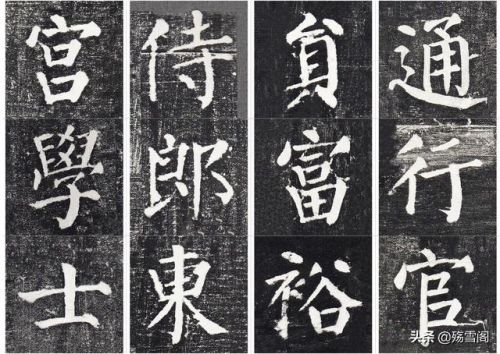 通行官
貟富裕
侍郎東
宮學士
头条 @殇雪阁